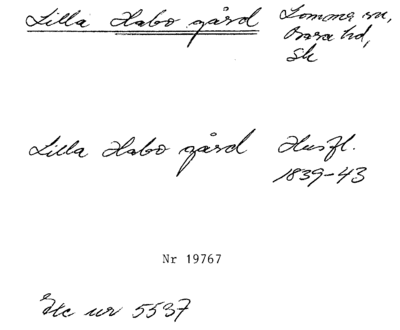 Lilla Habo gård Lomma sn,
Bara hd,
Sk
Lilla Habo gård Husfl.
1839-43
Nr 19767
Etc nr 5537